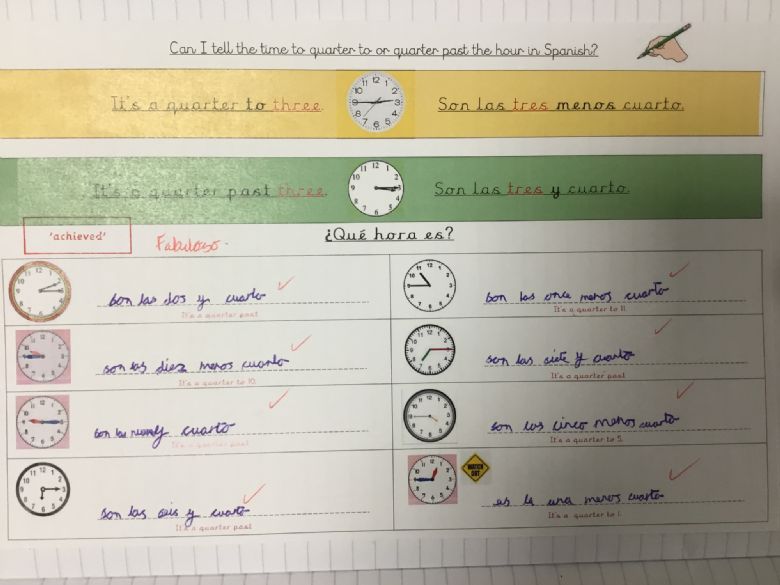 Can I tell the time to quarter to or quarter past the hour in Spanish?
It's a quarter to three.
Son las tres menos cuarto.
It's a quarter past three.
Son las tres y cuarto.
'achieved'
Fabuloso.
¿Qué hora es?
son las dos y cuarto
It's a quarter past
son las once menos cuarto
It's a quarter to 11.
son las diez menos cuarto
It's a quarter to 10.
son las siete y cuarto
It's a quarter past
son las y cuarto
It's a quarter past
son las cinco menos cuarto
It's a quarter to 5.
son las seis y cuarto
It's a quarter past
WATCH OUT
es la una menos cuarto
It's a quarter to 1.